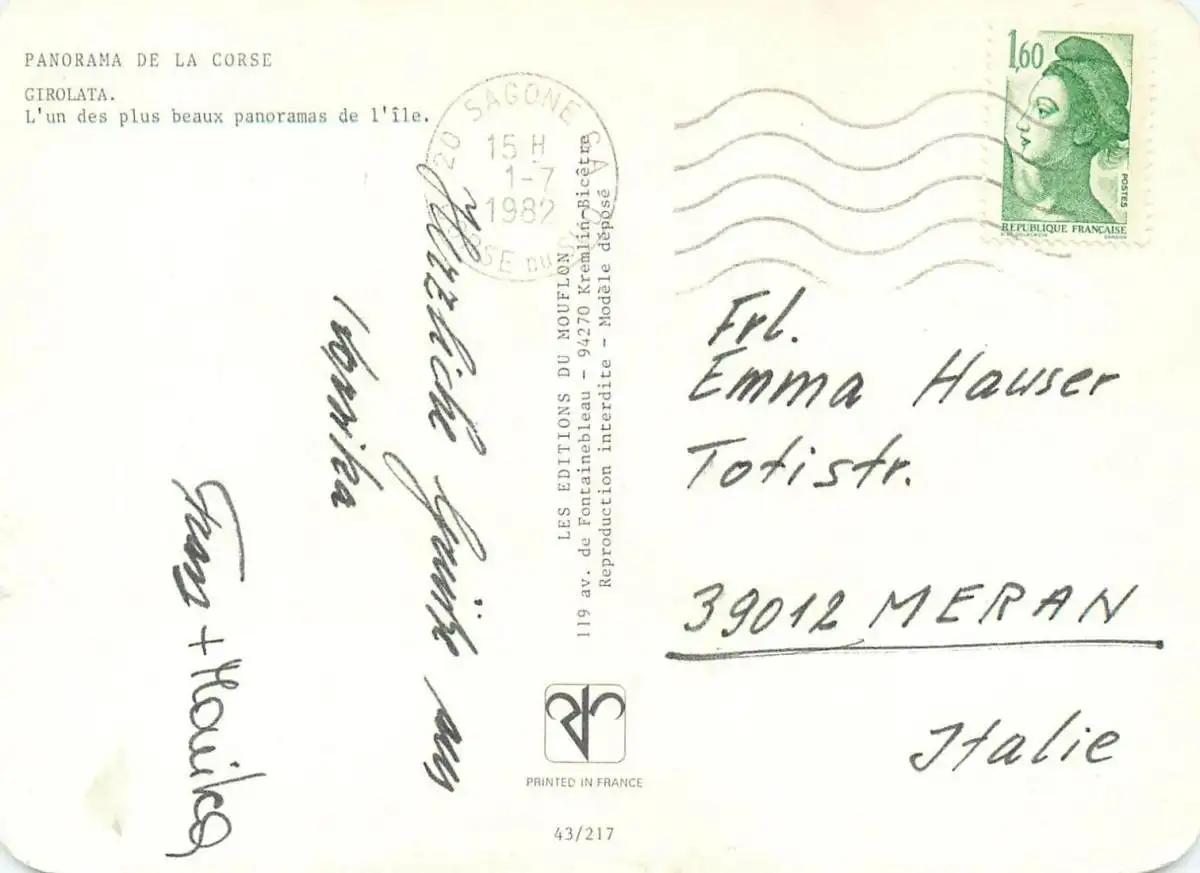 PANORAMA DE LA CORSE
GIROLATA.
L'un des plus beaux panoramas de l'île.
20 SAGONE
15 H
1-7
1982
CORSE DU SUD
1,60
POSTES
REPUBLIQUE FRANÇAISE
Herzliche Grüße aus
Korsika
Franz + Monika
LES EDITIONS DU MOUFLON
119 av. de Fontainebleau - 94270 Kremlin-Bicêtre
Reproduction interdite - Modèle déposé
Frl.
Emma Hauser
Totistr.
39012 MERAN
Italie
PRINTED IN FRANCE
43/217